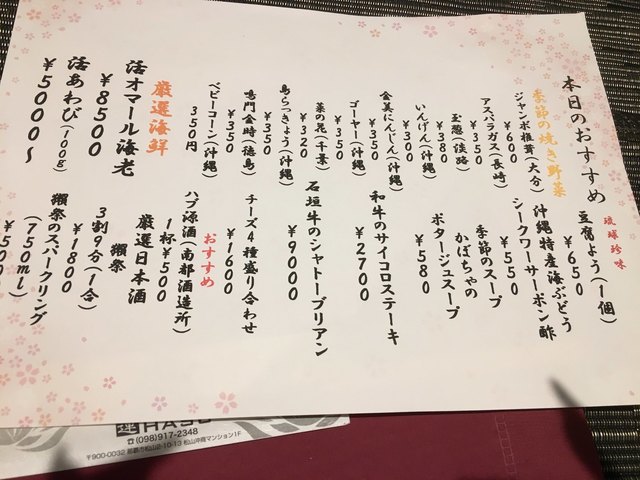 本日のおすすめ
季節の焼き野菜
ジャンボ椎茸(大分)
¥600
アスパラガス(長崎)
¥350
玉葱(淡路)
¥380
いんげん(沖縄)
¥300
金美にんじん(沖縄)
¥350
ゴーヤー(沖縄)
¥350
菜の花(千葉)
¥320
島らっきょう(沖縄)
¥350
鳴門金時(徳島)
¥350
ベビーコーン(沖縄)
350円
厳選海鮮
活オマール海老
¥8500
活あわび(100g)
¥5000~
琉球珍味
豆腐よう(1個)
¥650
沖縄特産海ぶどう
シークワーサーポン酢
¥550
季節のスープ
かぼちゃの
ポタージュスープ
¥580
和牛のサイコロステーキ
¥2700
石垣牛のシャトーブリアン
¥9000
チーズ4種盛り合わせ
¥1600
おすすめ
ハブ源酒(南都酒造所)
1杯¥500
厳選日本酒
獺祭
3割9分(1合)
¥1800
獺祭のスパークリング
(750ml)
(098)917-2348
〒900-0032 那覇市松山2-10-13 松山沖商マンション1F